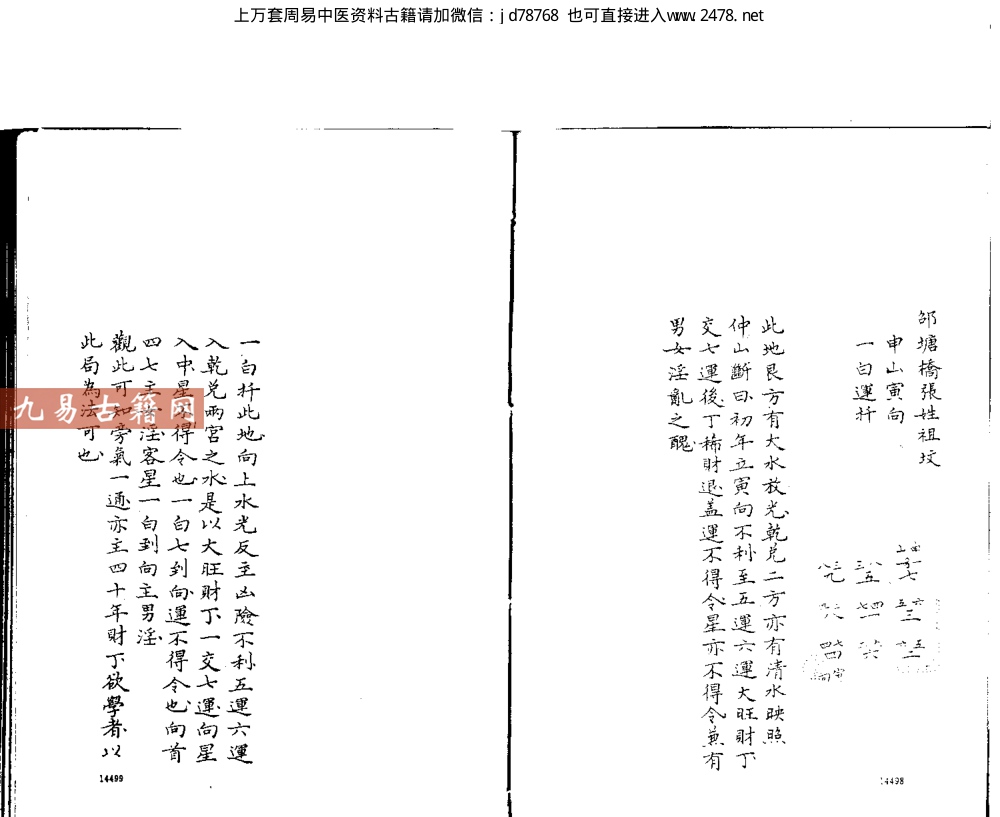 上万套周易中医资料古籍请加微信：jd78768 也可直接进入www.2478.net
邵塘橋張姓祖坟
申山寅向
一白運扦
此地艮方有大水放光乾兌二方亦有清水映照
仲山斷曰初年立寅向不利至五運六運大旺財丁
交七運後丁稀財退盖運不得令星亦不得令兼有
男女淫亂之醜
14498
一白扦此地向上水光反主凶險不利五運六運
入乾兌兩宮之水是以大旺財丁一交七運向星
入中星不得令也一白七到向運不得令也向首
四七主女淫客星一白到向主男淫
觀此可知旁氣一通亦主四十年財丁欲學者以
此局為法可也
14499
九易古籍网